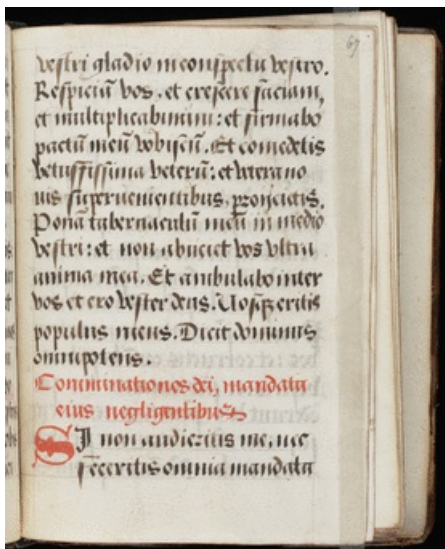 67
vestri gladio in conspectu vestro.
Respiciā vos, et crescere faciam,
et multiplicabimini: et firmabo
pactū meū vobiscū. Et comedetis
vetustissima veterū: et vetera no
uis superuenientibus proijcietis.
Ponā tabernaculū meū in medio
vestri: et non abijciet vos vltra
anima mea. Et ambulabo inter
vos et ero vester deus. Vosq̃ eritis
populus meus. Dicit dominus
omnipotens.
Comminationes dei, mandata
eius negligentibus
SI non audieritis me, nec
feceritis omnia mandata